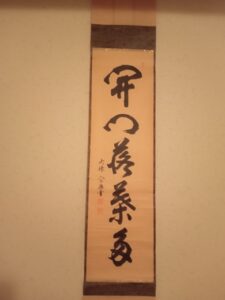 開門落葉多